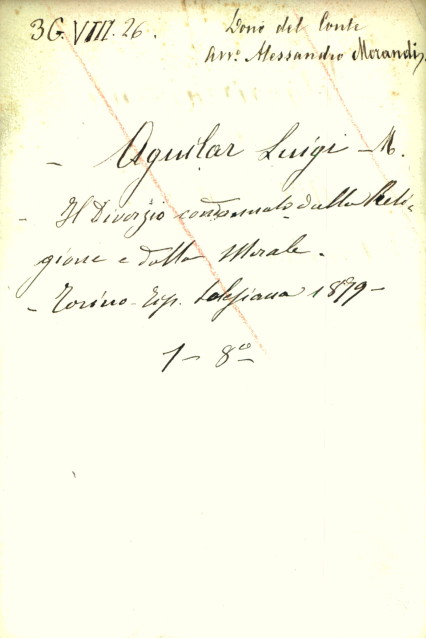 3G. VIII. 26.
Dono del Conte
Avv.º Alessandro Morandi
– Aguilar Luigi – M.
– Il Divorzio condannato dalla Reli-
gione e dalla Morale.
– Torino – Tip. Salesiana 1879 –
1 – 8º